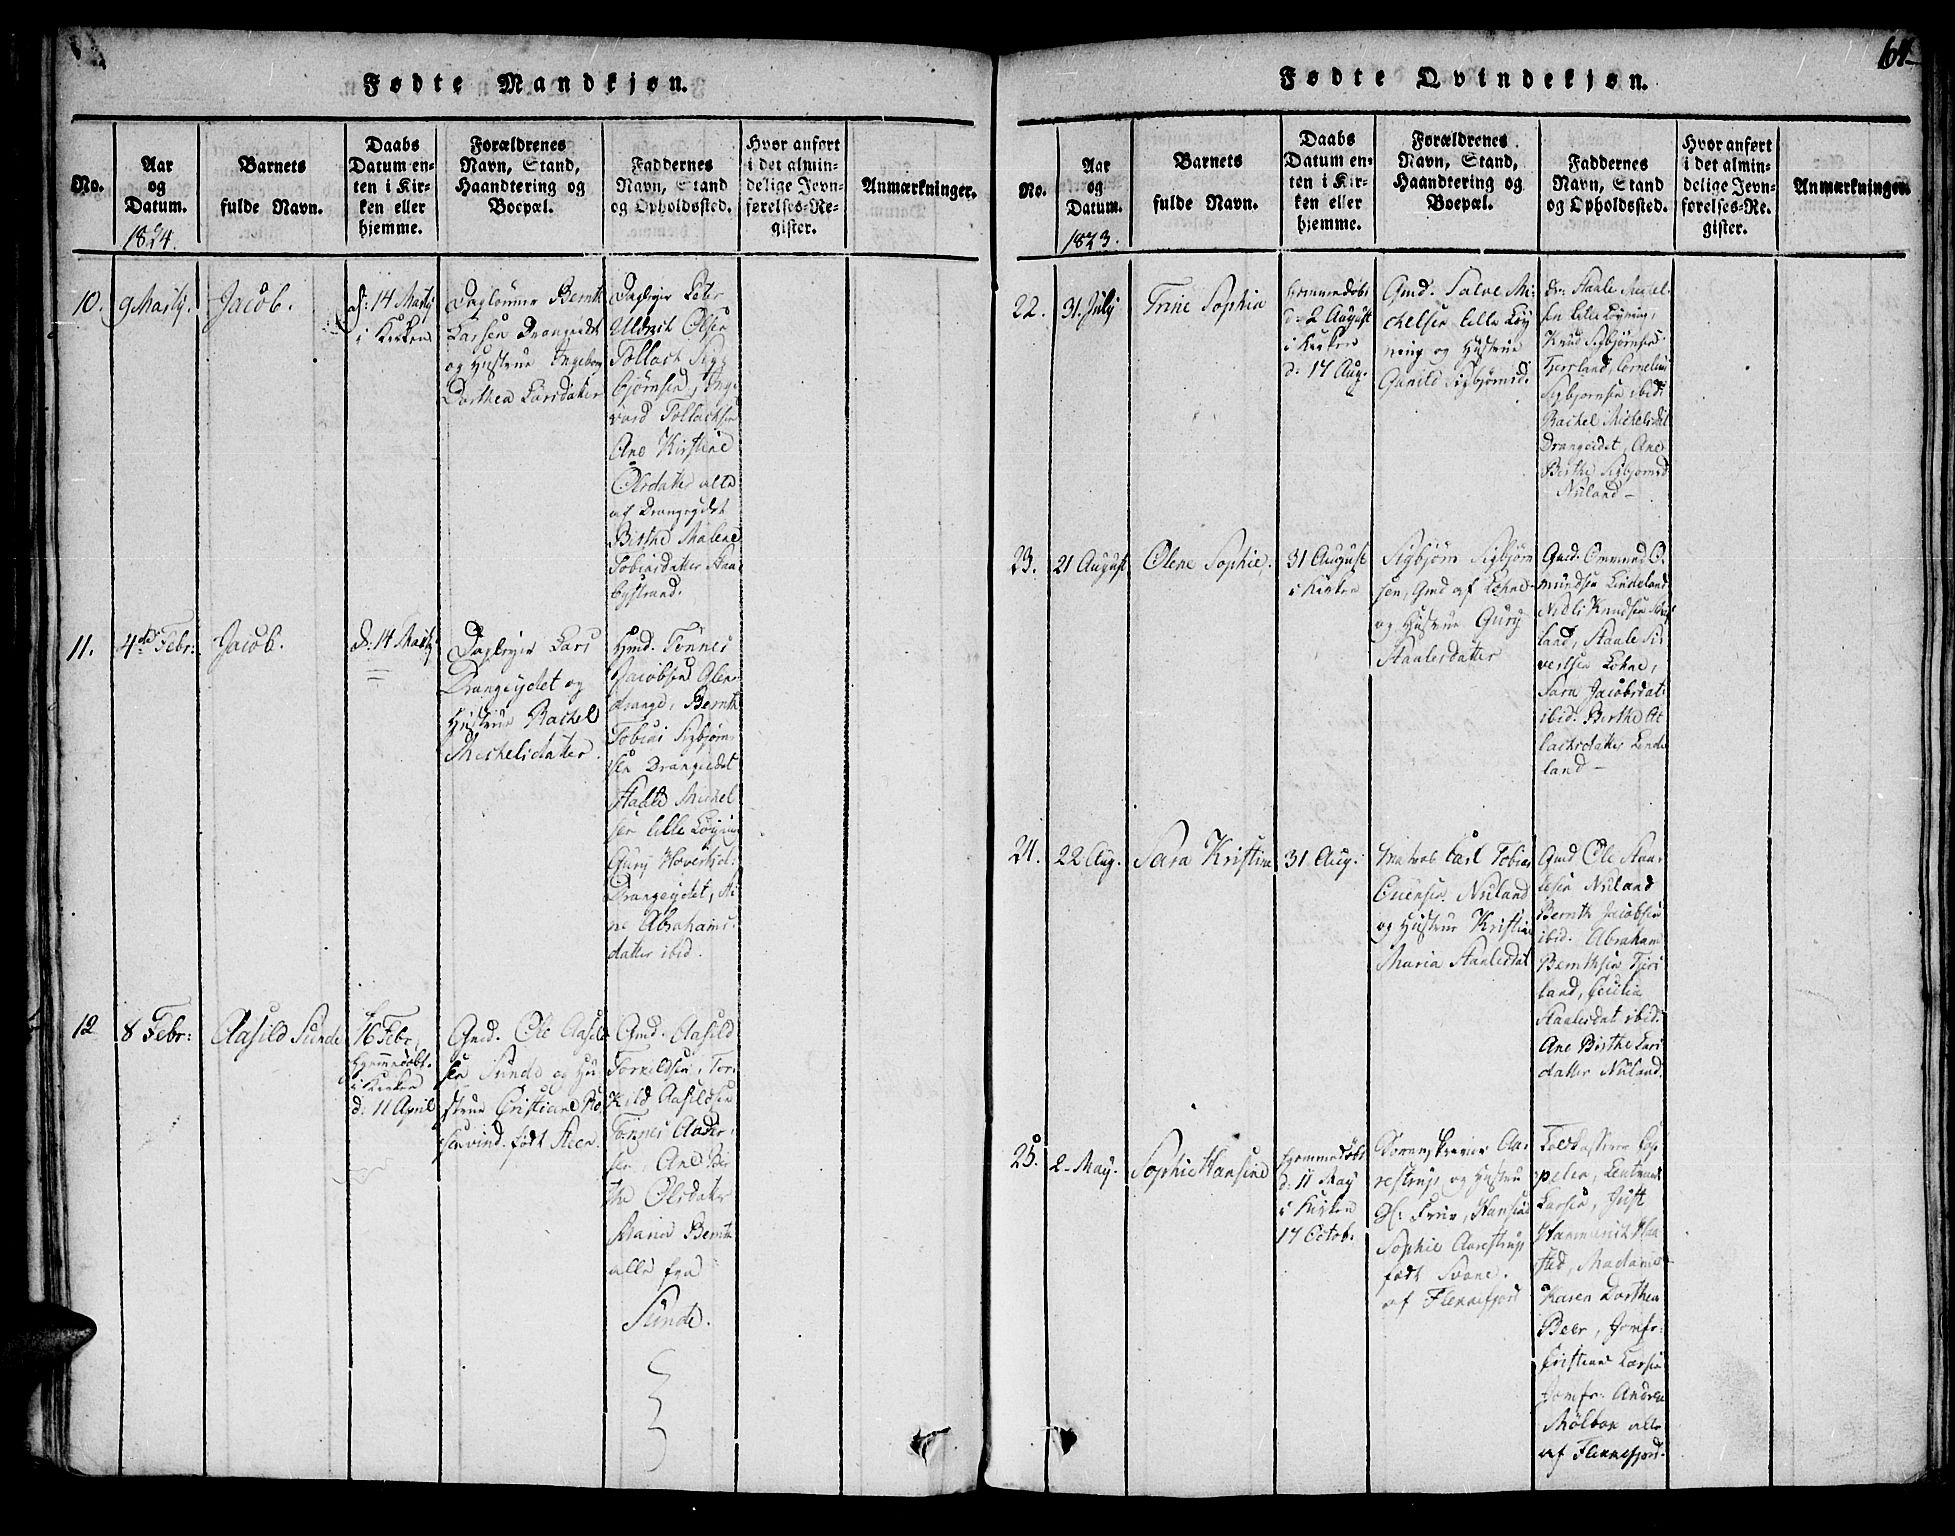 Fødte Mandkjøn.
No.
Aar
og
Datum.
1824.
Barnets
fulde Navn.
Daabs
Datum en-
ten i Kir-
ken eller
hjemme.
Forældrenes
Navn, Stand,
Haandtering og
Boepæl.
Faddernes
Navn, Stand
og Opholdssted.
Hvor anført
i det almin-
delige Jevn-
førelses-Re-
gister.
Anmærkninger.
10.
9 Martz.
Jacob.
d: 14 Martz
i Kirken
Daglønner Bernt
Larsen Drangeidet
og Hustrue Ingebor
Dorthea Larsdatter
Daglejer Peter
Uldrik Olsen
Tollach Sig
bjørnsen, Inge
vord Tollachsen
Ane Kirstine
Olsdatter alle
af Drangeydet
Birthe Malene
Tobiasdatter Raa
bystrand.
11.
4de Febr:
Jacob.
d: 14 Martz
Daglejer Lars
Drangeydet og
Hustrue Rachel
Michelsdatter.
Hmd. Tønnes
Jacobsen Glen
drange, Bernth
Tobias Sigbjørn-
sen Drangeidet
Staale Michel
sen lille Løgning
Gury Hoverhol-
Drangeydet, An
ne Abrahams-
datter ibid.
12
8 Febr:
Aasild Sunde
16 Febr.
Hjemmedøbt.
i Kirken
d: 11 April
Gmd. Ole Aasild
sen Sunde og Hu-
strue Cristiane Ro
senvind. født Steen.
Gmd. Aasild
Torkildsen, Tor-
kild Aasildsen
Tønnes Ander-
sen, Ane Bir
the Olsdatter
Maria Bernth
alle fra
Sunde.
Fødte Qvindekjøn.
64
No.
Aar
og
Datum.
1823.
Barnets
fulde Navn.
Daabs
Datum en-
ten i Kir-
ken eller
hjemme.
Forældrenes
Navn, Stand,
Haandtering og
Boepæl.
Faddernes
Navn, Stand
og Opholdssted.
Hvor anført
i det almin-
delige Jevn-
førelses-Re-
gister.
Anmærkninger.
22.
31. July
Trine Sophia
Hjemmedøbt
d: 2 August
i Kirken
d: 17 Aug.
Gmd. Salve Mi-
chelsen lille Løy
ning og Hustrue
Gunild Sigbjørnsd.
Dr: Staale Michel-
sen lille Løyning,
Knud Sigbjørnsen
Tjersland, Cornelius
Sigbjørnsen ibid:
Rachel Michelsdat
Drangeidet, Ane
Birthe Sigbjørnsd
Nuland —
23.
21 August
Olene Sophie.
31 August
i Kirken
Sigbjørn Sigbjørn
sen, Gmd af Lohne
og Hustrue Gury
Staalesdatter
Gmd. Ommund O-
mundsen Lindeland
Niels Knudsen
land, Staale Si-
vertsen Lohne,
Sara Jacobsdat:
ibid: Berthe At
lachsdatter Linde
land —
24.
22 Aug.
Sara Kristina
31 Aug:
Matros Carl Tobias
Evensen Nuland
og Hustrue Kristine
Maria Staalesdat
Gmd Ole Staa-
lesen Nuland
Bernth Jacobsen
ibid. Abraham
Bernthsen Tjers
land, Cecilia
Staalesdat ibid:
Ane Birthe Lars
datter Nuland.
25.
2 May.
Sophie Hansine
Hjemmedøbt
d: 11 May
i Kirken
17 Octob.
Sorenskriver Aa-
restrup og Hustru
Frue, Hansine
Sophie Aarestrup
født Svane.
af Flekkefjord
Toldkasserer Ep-
peler, Leutnant
Larsen, Just
Hammerik Han
sted, Madame
Karen Dorthea
Beer, Jomfr:
Cristiane Larsen
Jomfr: Andrea
Mølbak alle
af Flekkefjord.